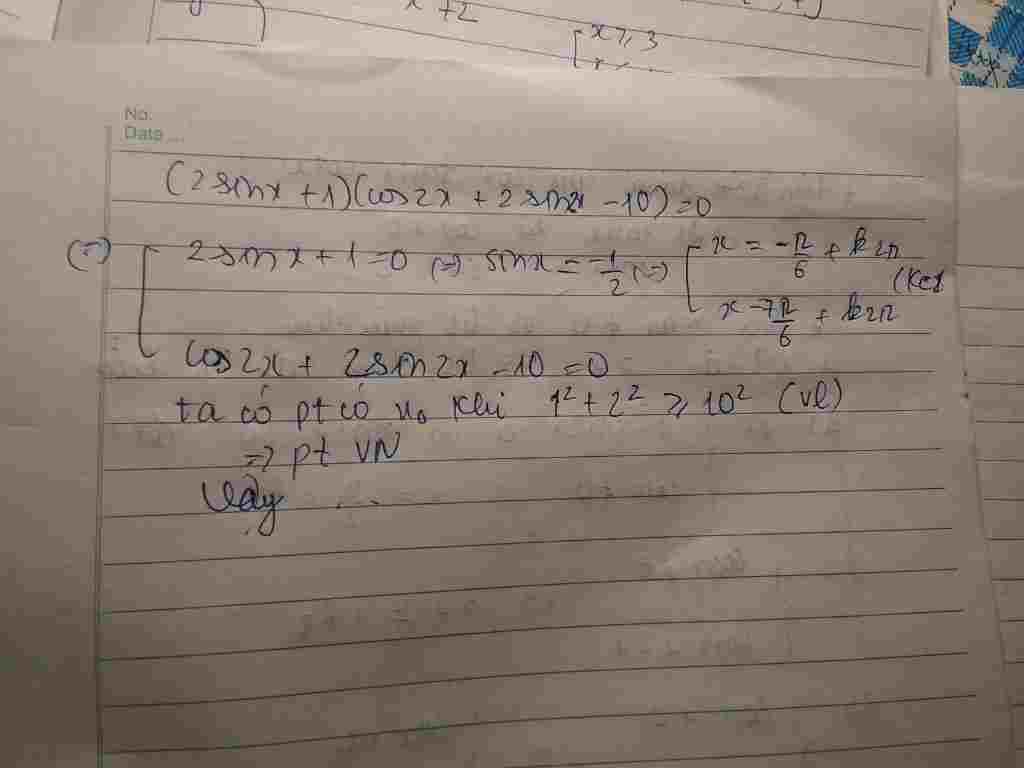 x+2
[x≥3
No.
Date ...
(2sinx+1)(cos2x + 2sin2x -10)=0
(=) [ 2sinx+1=0 (=) sinx = -1/2 (=) [ x = -π/6 + k2π
x = 7π/6 + k2π
(k∈
cos2x + 2sin2x - 10 = 0
ta có pt có no khi 1² + 2² ≥ 10² (vl)
=> pt VN
Vậy ....